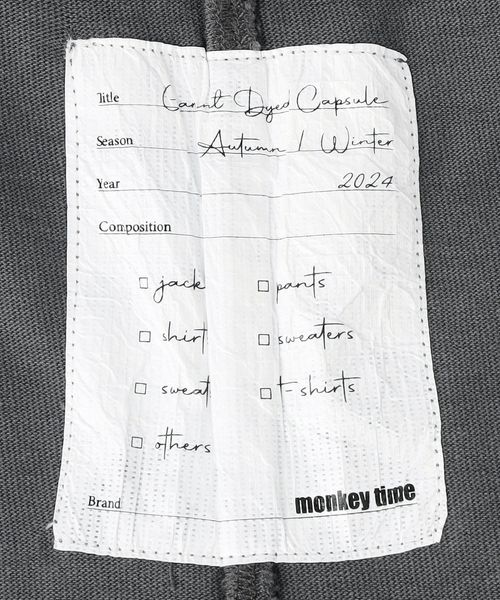 Title Garmt Dyed Capsule
Season Autumn / Winter
Year 2024
Composition
jack pants
shirt sweaters
sweat t-shirts
others
Brand monkey time